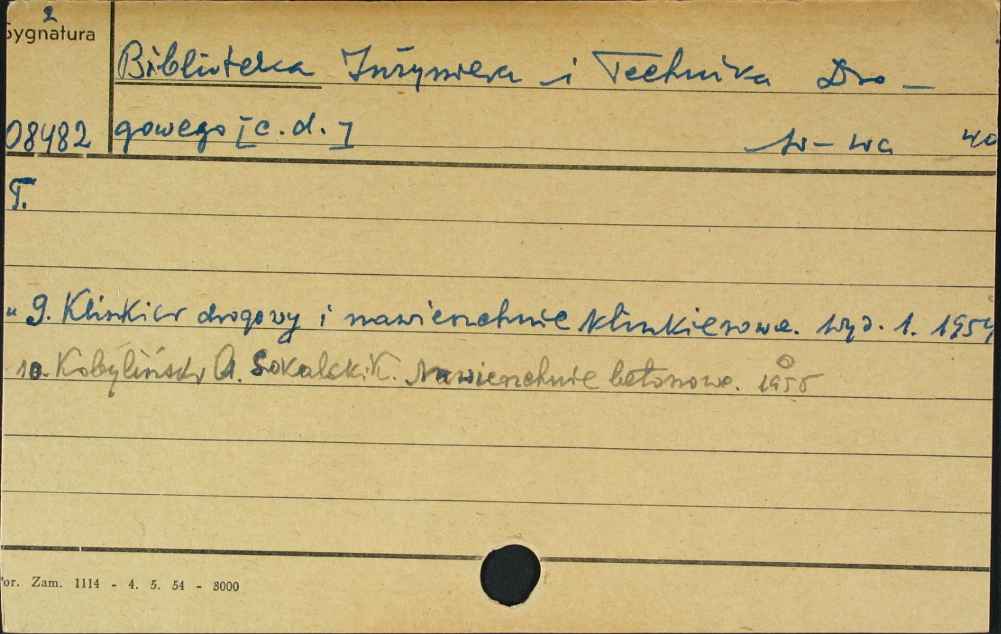 2
Sygnatura
Biblioteka Inżyniera i Technika Dro-
08482 gowego [c.d.] W-wa 40
T.
" 9. Klinkier drogowy i nawierzchnie klinkierowe. Wyd. 1. 1954
10. Kobyliński A. Sokalski K. Nawierzchnie betonowe. 1955
or. Zam. 1114 - 4. 5. 54 - 3000